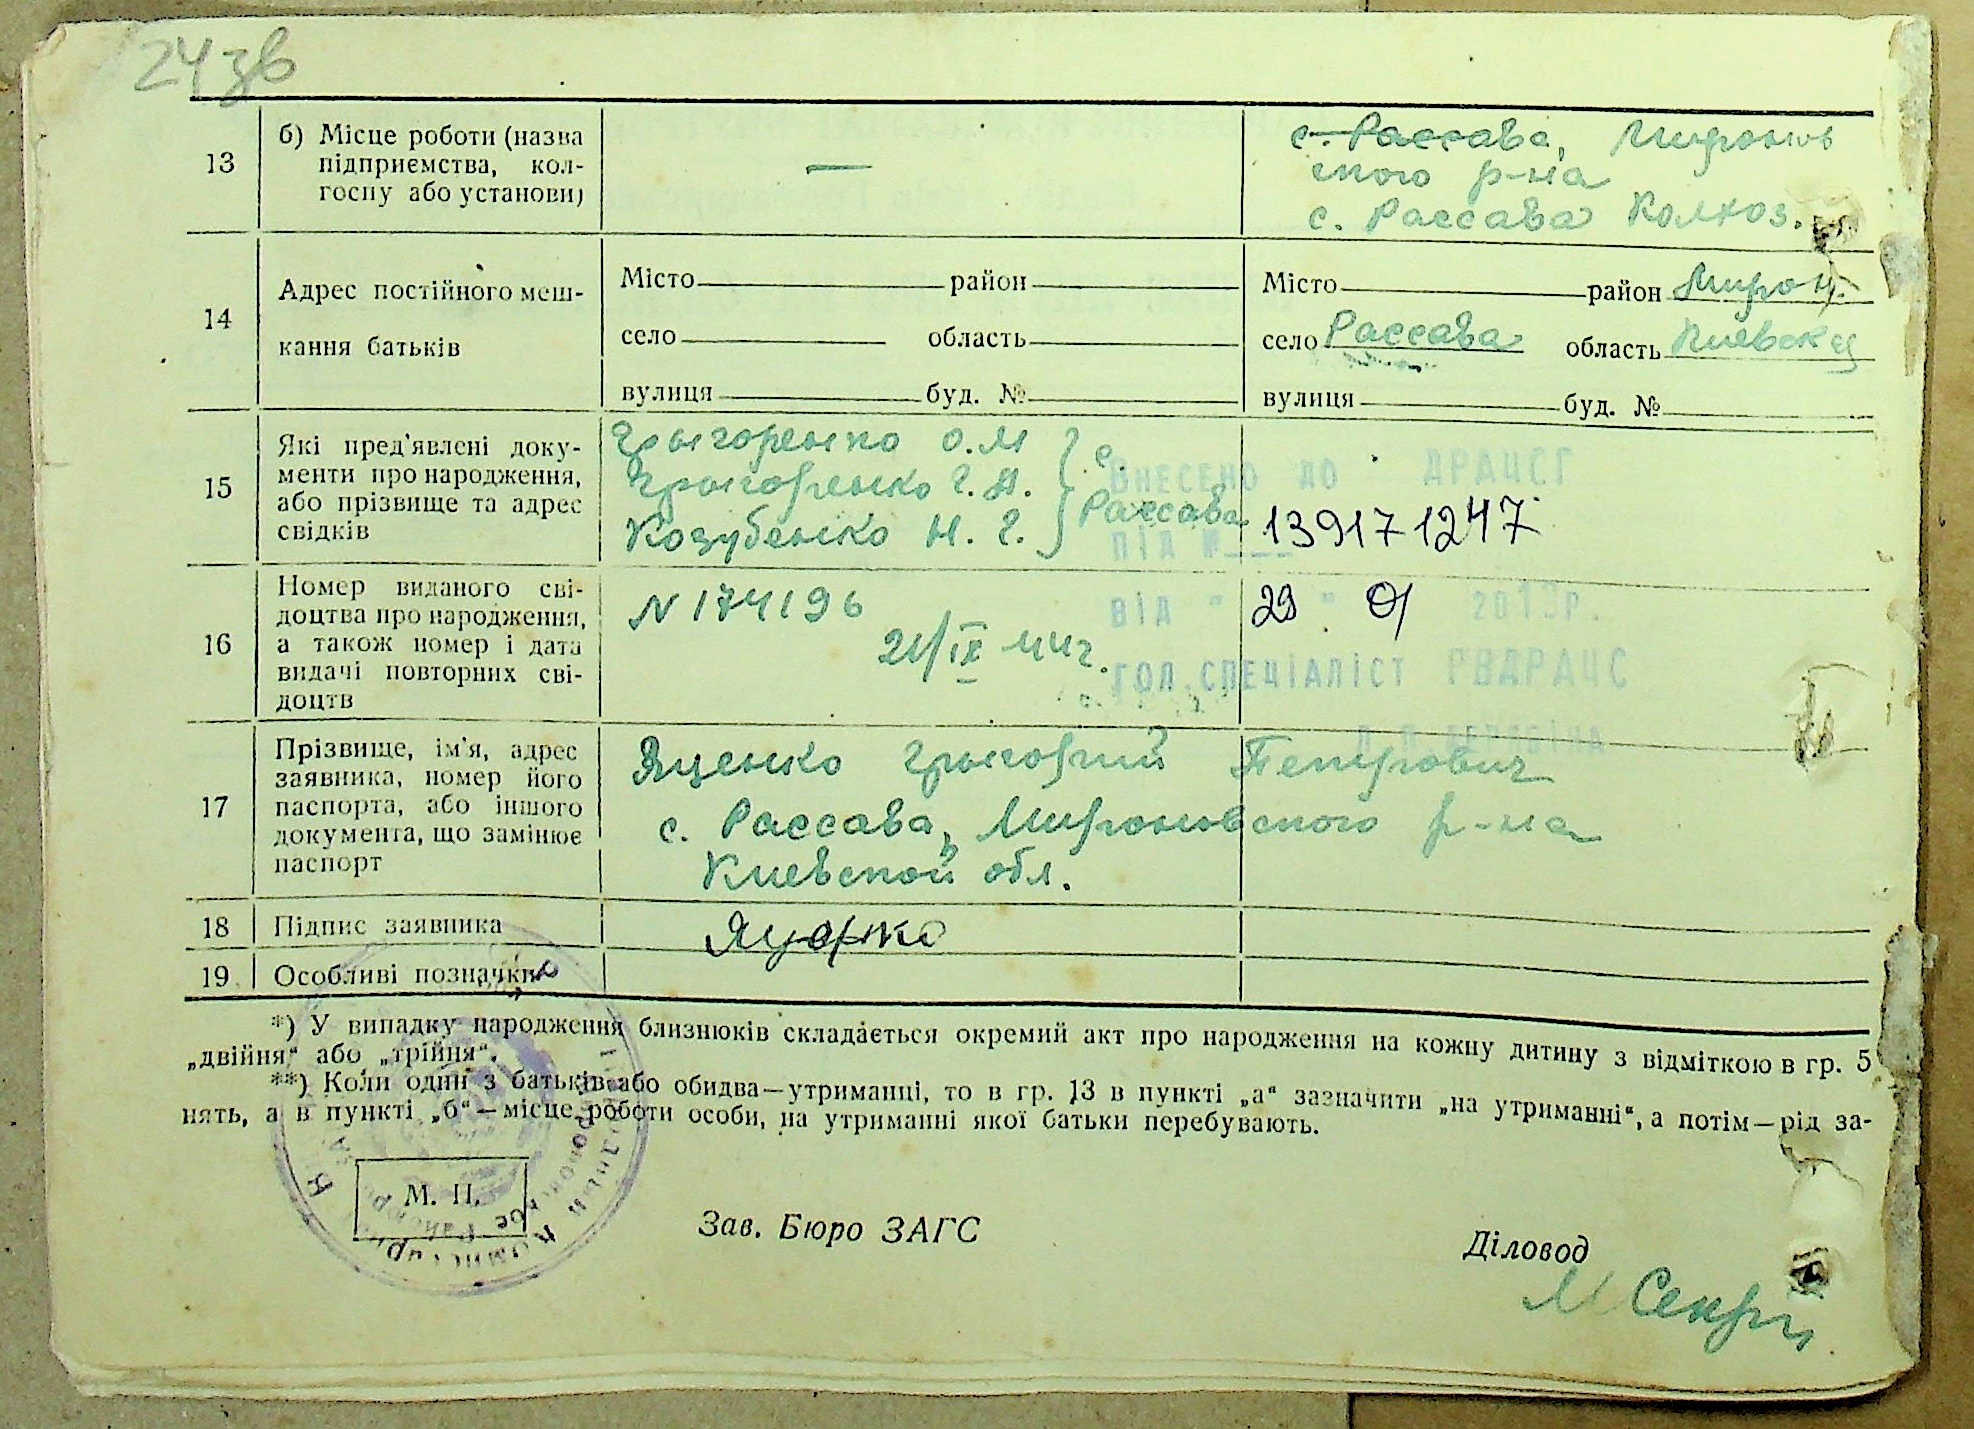 24зв
13
б) Місце роботи (назва
підприємства, кол-
госпу або установи)
—
с. Рассава, Миронов
ского р-на
с. Рассава Колхоз.
14
Адрес постійного меш-
кання батьків
Місто район
село область
вулиця буд. №
Місто район Мирон.
село Рассава область Киевская
вулиця буд. №
15
Які пред'явлені доку-
менти про народження,
або прізвище та адрес
свідків
Григоренко О. М
Григоренко Г. Н.
Козубенко Н. Г.
с.
Рассава
ВНЕСЕНО ДО ДРАЦСГ
ПІД № 139171247
16
Номер виданого сві-
доцтва про народження,
а також номер і дата
видачі повторних сві-
доцтв
N 174196
21/IX 44г.
ВІД " 29 " 01 2013р.
ГОЛ.СПЕЦІАЛІСТ РВДРАЦС
17
Прізвище, ім'я, адрес
заявника, номер його
паспорта, або іншого
документа, що замінює
паспорт
Яценко Григорий Петрович
с. Рассава, Мироновского р-на
Киевской обл.
18 Підпис заявника
Яценко
19 Особливі позначки
*) У випадку народження близнюків складається окремий акт про народження на кожну дитину з відміткою в гр. 5
„двійня“ або „трійня“.
**) Коли один з батьків або обидва—утриманці, то в гр. 13 в пункті „а“ зазначити „на утриманні“, а потім—рід за-
нять, а в пункті „б“—місце роботи особи, на утриманні якої батьки перебувають.
М. П.
Зав. Бюро ЗАГС
Діловод